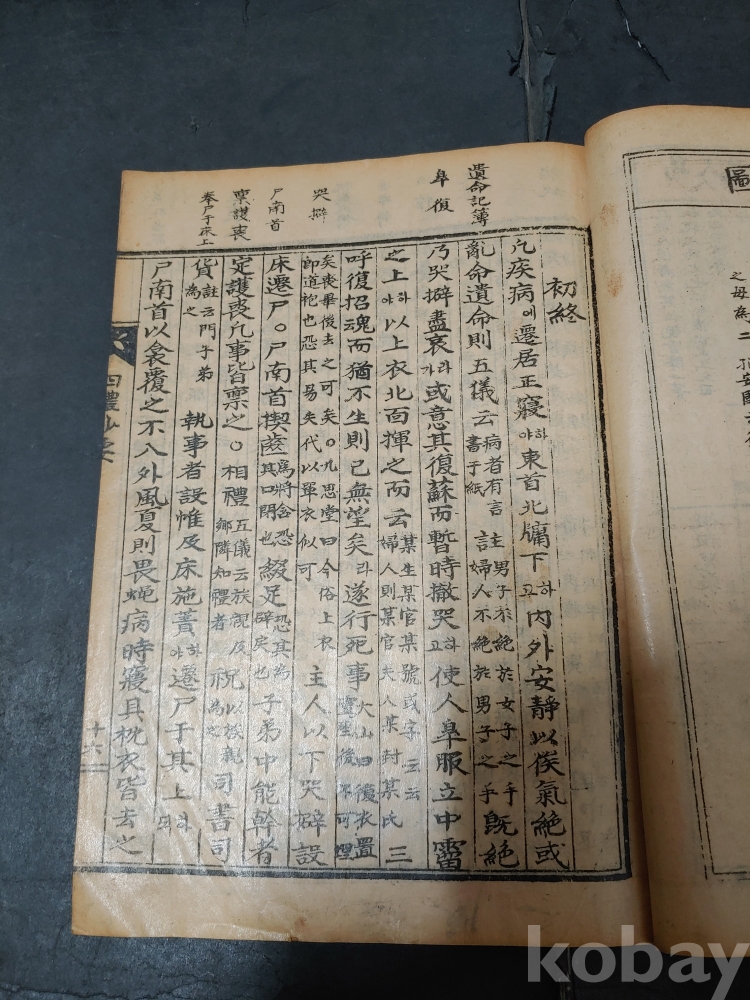 遺命記簿
皐復
哭擗
尸南首
稟護喪
奉尸于床上
初終
凢疾病에遷居正寢하야東首北牖下하고內外安靜以俟氣絶或
亂命遺命則五儀云病者有言書于紙註男子不絶於女子之手婦人不絶於男子之手旣絶
乃哭擗盡哀하라가或意其復蘇而暫時撤哭하고使人皐服立中霤
之上하야以上衣北面揮之而云某生某官某號或字云云婦人則某官夫人某封某氏三
呼復招魂而猶不生則已無望矣라遂行死事大山曰復衣置靈座後不可埋
矣喪畢後去之可矣○九思堂曰今俗上衣卽道袍也恐其易失代以單衣似可主人以下哭擗設
床遷尸○尸南首楔齒爲將含恐其口閉也綴足恐其爲辟戾也子弟中能幹者
定護喪凢事皆稟之○相禮五儀云族親及鄕隣知禮者祝以族親爲之司書司
貨註云門子弟爲之執事者設帷及床施簀하야遷尸于其上하되
尸南首以衾覆之不入外風夏則畏蝇病時寢具枕衣皆去之
四禮
十六
圖
之母爲二
kobay